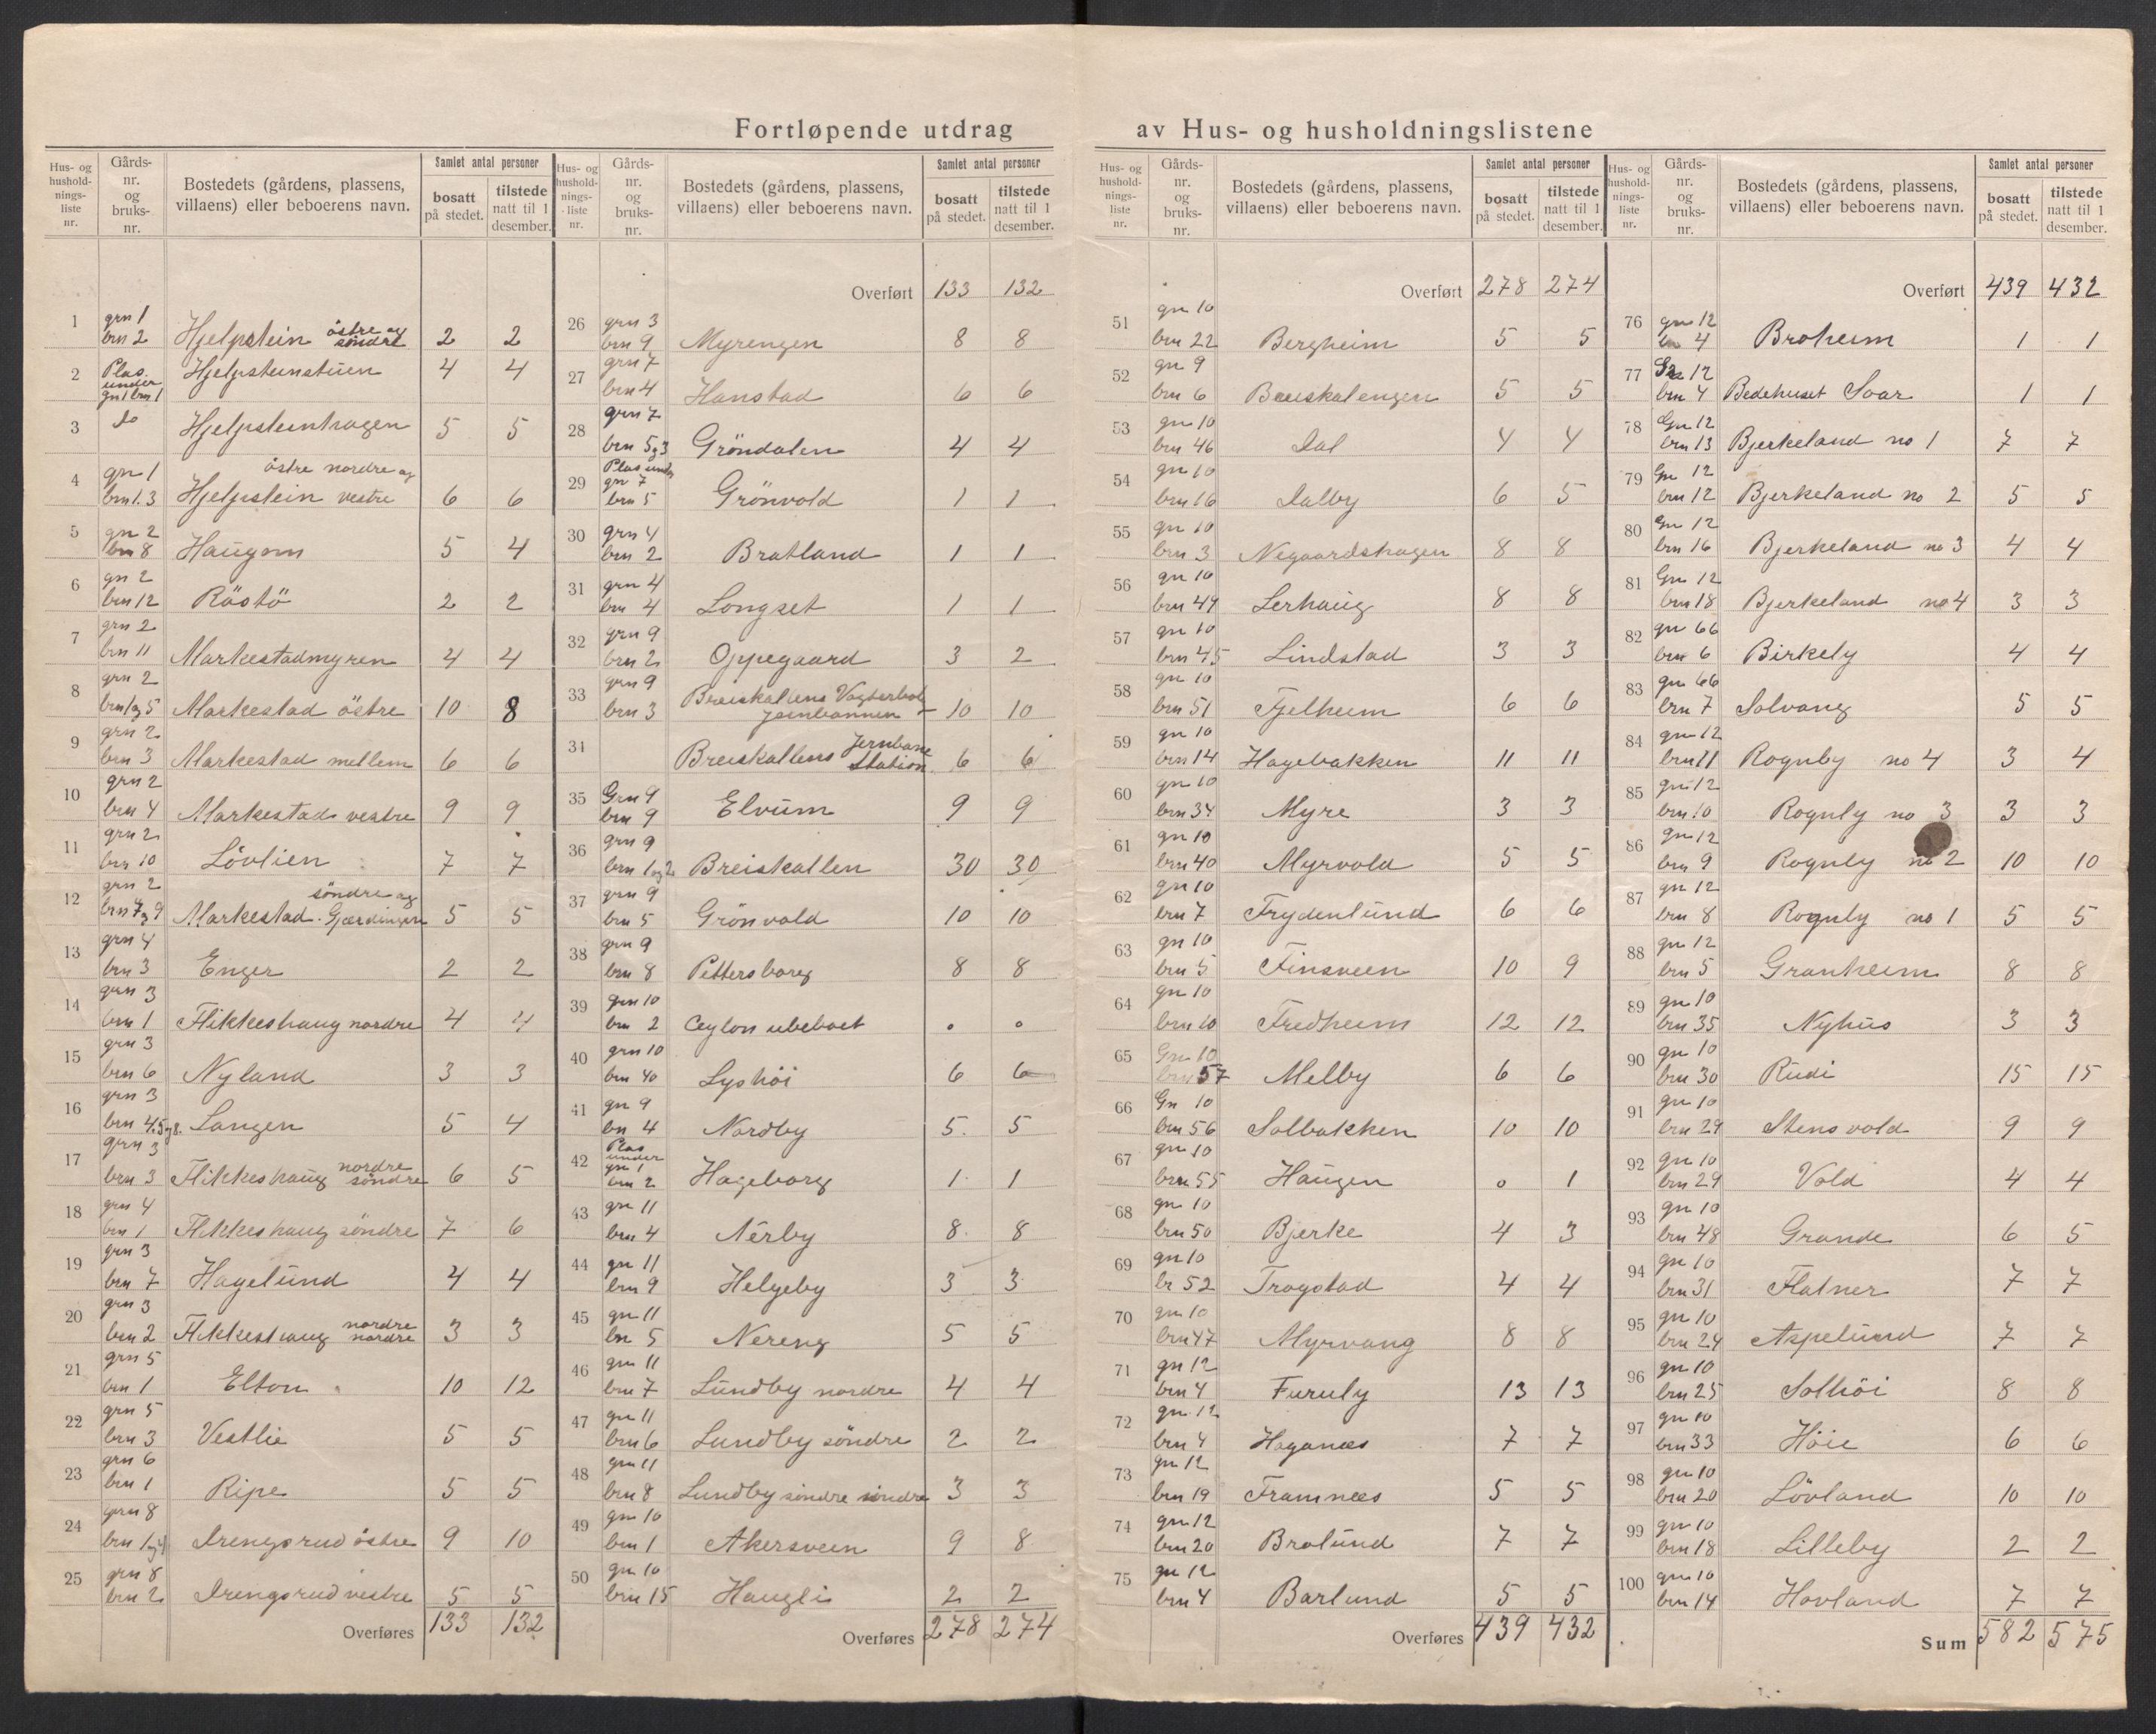 Fortløpende utdrag av Hus- og husholdningslistene
Hus- og husholdnings-liste nr. | Gårds-nr. og bruks-nr. | Bostedets (gårdens, plassens, villaens) eller beboerens navn. | Samlet antal personer | bosatt på stedet. | tilstede natt til 1 desember.
1 grn 1 brn 2 Hjelpstein östre og söndre 2 2
2 Plas. under gn 1 brn 1 Hjelpsteinstuen 4 4
3 do Hjelpsteinhagen 5 5
4 gn 1 brn 1.3 Hjelpstein östre nordre og vestre 6 6
5 gn 2 brn 8 Haugom 5 4
6 gn 2 brn 12 Rästö 2 2
7 grn 2 brn 11 Markestadmyren 4 4
8 grn 2 brn 1og5 Markestad östre 10 8
9 grn 2 brn 3 Markestad mellem 6 6
10 grn 2 brn 4 Markestad vestre 9 9
11 grn 2 brn 10 Lövlien 7 7
12 grn 2 brn 7og9 Markestad söndre og Gjærdingen 5 5
13 grn 4 brn 3 Enger 2 2
14 grn 3 brn 1 Flikkeshaug nordre 4 4
15 grn 3 brn 6 Nyland 3 3
16 grn 3 brn 4.5og8. Langen 5 4
17 grn 3 brn 3 Flikkeshaug nordre söndre 6 5
18 grn 4 brn 1 Flikkeshaug söndre 7 6
19 grn 3 brn 7 Hagelund 4 4
20 grn 3 brn 2 Flikkeshaug nordre nordre 3 3
21 grn 5 brn 1 Elton 10 12
22 grn 5 brn 3 Vestlie 5 5
23 grn 6 brn 1 Ripe 5 5
24 grn 8 brn 1og4 Drengsrud östre 9 10
25 grn 8 brn 2 Drengsrud vestre 5 5
Overføres 133 132
Hus- og husholdnings-liste nr. | Gårds-nr. og bruks-nr. | Bostedets (gårdens, plassens, villaens) eller beboerens navn. | Samlet antal personer | bosatt på stedet. | tilstede natt til 1 desember.
Overført 133 132
26 grn 3 brn 9 Myrengen 8 8
27 grn 7 brn 4 Hanstad 6 6
28 grn 7 brn 5og3 Gröndalen 4 4
29 Plas under gn 7 brn 5 Grönvold 1 1
30 grn 4 brn 2 Bratland 1 1
31 grn 4 brn 4 Longset 1 1
32 grn 9 brn 2 Oppegaard 3 2
33 grn 9 brn 3 Breiskallens Vogterbol Jernbannen 10 10
34 Breiskallens Jernbane Station 6 6
35 Grn 9 brn 9 Elvum 9 9
36 grn 9 brn 1og2 Breiskallen 30 30
37 grn 9 brn 5 Grönvold 10 10
38 grn 9 brn 8 Pettersborg 8 8
39 grn 10 brn 2 Ceylon ubeboet 0 0
40 grn 10 brn 40 Lyshöi 6 6
41 gn 9 bn 4 Nordby 5 5
42 Plas under gn 1 brn 2 Hageborg 1 1
43 grn 11 brn 4 Nerby 8 8
44 gn 11 brn 9 Helgeby 3 3
45 gn 11 bn 5 Nereng 5 5
46 gn 11 brn 7 Lundby nordre 4 4
47 gn 11 brn 6 Lundby söndre 2 2
48 gn 11 brn 8 Lundby söndre söndre 3 3
49 gn 10 brn 1 Akersveen 9 8
50 gn 10 brn 15 Haugli 2 2
Overføres 278 274
Hus- og husholdnings-liste nr. | Gårds-nr. og bruks-nr. | Bostedets (gårdens, plassens, villaens) eller beboerens navn. | Samlet antal personer | bosatt på stedet. | tilstede natt til 1 desember.
Overført 278 274
51 gn 10 brn 22 Bergheim 5 5
52 gn 9 brn 6 Breiskalengen 5 5
53 gn 10 brn 46 Dal 4 4
54 gn 10 brn 16 Dalby 6 5
55 gn 10 brn 3 Negaardshagen 8 8
56 gn 10 brn 44 Lerhaug 8 8
57 gn 10 brn 45 Lindstad 3 3
58 gn 10 brn 51 Fjelheim 6 6
59 gn 10 brn 14 Hagebakken 11 11
60 gn 10 brn 34 Myre 3 3
61 gn 10 brn 40 Myrvold 5 5
62 gn 10 brn 7 Frydenlund 6 6
63 gn 10 brn 5 Finsveen 10 9
64 gn 10 brn 10 Fredheim 12 12
65 Gn 10 brn 57 Melby 6 6
66 Gn 10 brn 56 Solbakken 10 10
67 gn 10 brn 55 Haugen 0 1
68 gn 10 brn 50 Bjerke 4 3
69 gn 10 br 52 Trogstad 4 4
70 gn 10 brn 47 Myrvang 8 8
71 gn 12 brn 4 Furuly 13 13
72 gn 12 brn 4 Haganæs 7 7
73 gn 12 brn 19 Framnæs 5 5
74 gn 12 brn 20 Brolund 7 7
75 gn 12 brn 4 Barlund 5 5
Overføres 439 432
Hus- og husholdnings-liste nr. | Gårds-nr. og bruks-nr. | Bostedets (gårdens, plassens, villaens) eller beboerens navn. | Samlet antal personer | bosatt på stedet. | tilstede natt til 1 desember.
Overført 439 432
76 gn 12 bn 4 Broheim 1 1
77 Gn 12 brn 4 Bedehuset Soar 1 1
78 Gn 12 brn 13 Bjerkeland no 1 7 7
79 Gn 12 brn 12 Bjerkeland no 2 5 5
80 Gn 12 brn 16 Bjerkeland no 3 4 4
81 Gn 12 brn 18 Bjerkeland no 4 3 3
82 gn 66 brn 6 Birkely 4 4
83 gn 66 brn 7 Solvang 5 5
84 gn 12 brn 11 Rognby no 4 3 4
85 gn 12 brn 10 Rognly no 3 3 3
86 gn 12 brn 9 Rognly no 2 10 10
87 gn 12 brn 8 Rognly no 1 5 5
88 gn 12 brn 5 Granheim 8 8
89 gn 10 brn 35 Nyhus 3 3
90 gn 10 brn 30 Rudi 15 15
91 gn 10 brn 29 Stensvold 9 9
92 gn 10 brn 29 Vold 4 4
93 gn 10 brn 48 Grande 6 5
94 gn 10 brn 31 Flatner 7 7
95 gn 10 brn 24 Aspelund 7 7
96 gn 10 brn 25 Solhöi 8 8
97 gn 10 brn 33 Höie 6 6
98 gn 10 brn 20 Lövland 10 10
99 gn 10 brn 18 Lilleby 2 2
100 gn 10 brn 14 Hovland 7 7
Sum 582 575